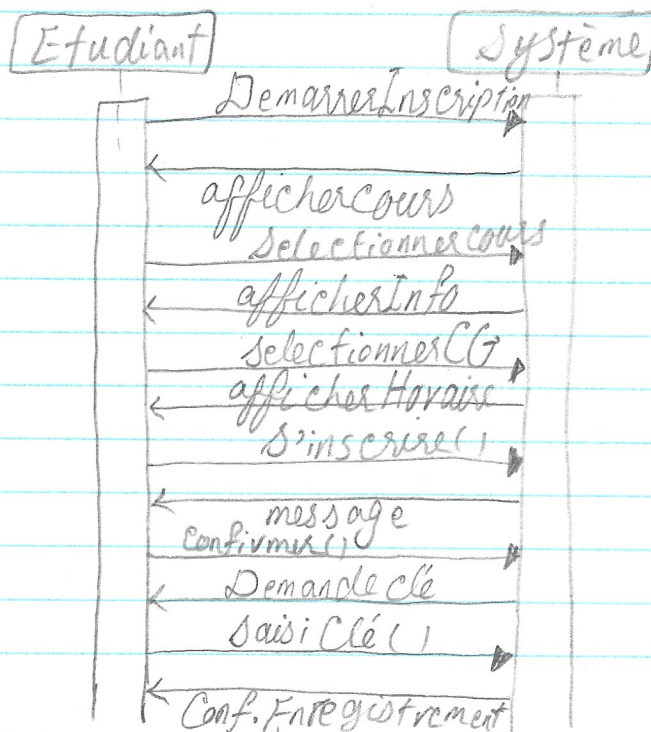 Etudiant
Système
DemarrerInscription
afficher cours
selectionner cours
afficherInfo
selectionnerCG
afficher Horaire
s'inscrire()
message
Confirmer()
Demande clé
saisi Clé()
Conf. Enregistrement